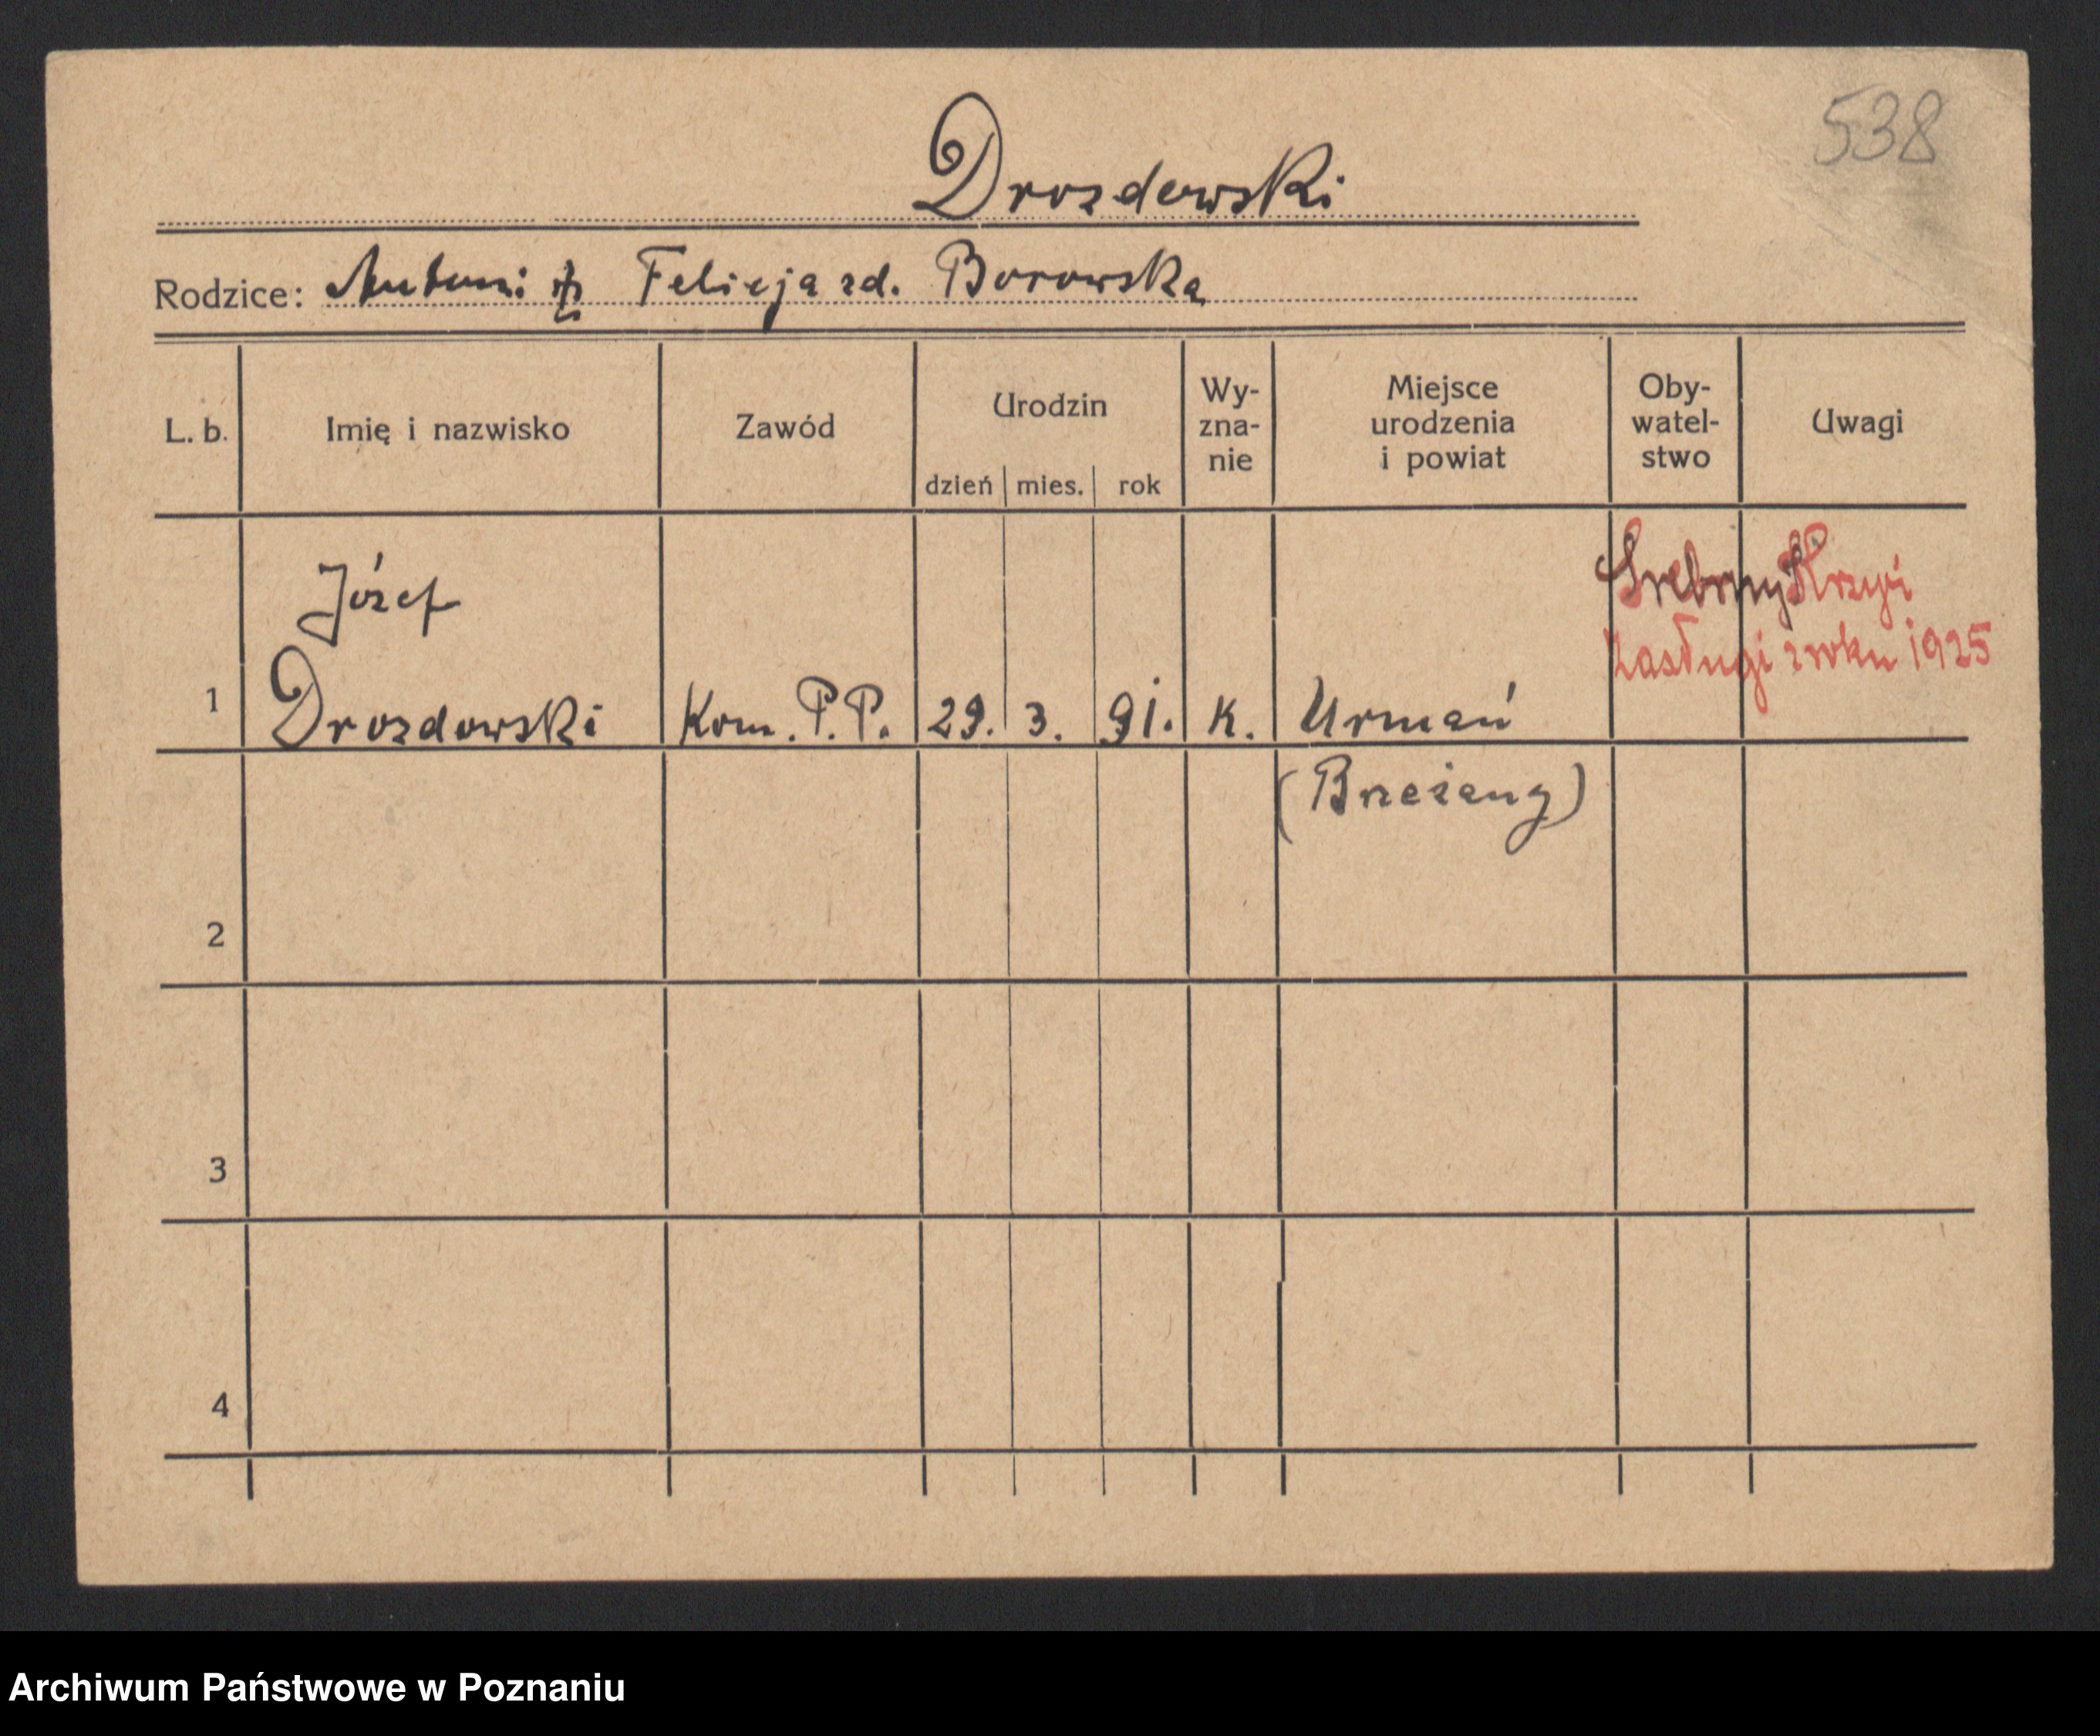 538
Drozdowski
Rodzice: Antoni ✝ Felicja zd. Borowska
L. b. Imię i nazwisko Zawód Urodzin dzień mies. rok Wy-zna-nie Miejsce urodzenia i powiat Oby-watel-stwo Uwagi
Józef
Srebrny Krzyż
Zasługi z roku 1925
1 Drozdowski Kom. P.P. 29. 3. 91. K. Urmań
(Brzeżany)
2
3
4
Archiwum Państwowe w Poznaniu